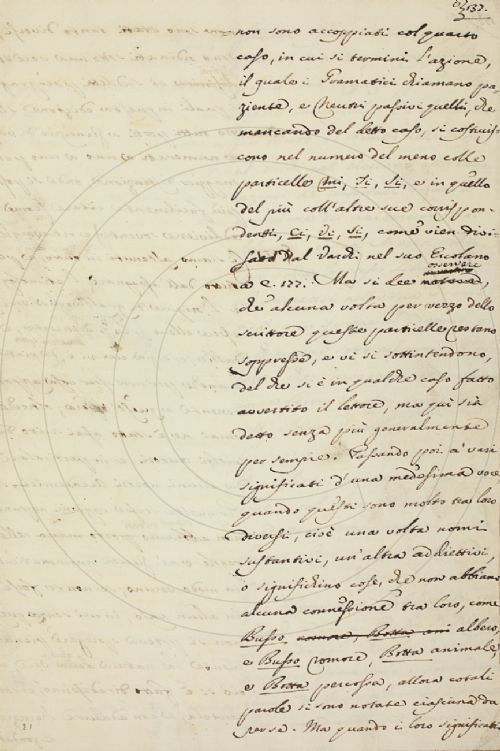 137.
non sono accoppiati col quarto
caso, in cui si termini l'azione,
il quale i Gramatici chiamano pa-
ziente, e Neutri passivi quelli, che
mancando del detto caso, si costruis-
cono nel numero del meno colle
particelle mi, ti, si, e in quello
del più coll'altre sue corrispon-
denti, ci, vi, si, come vien divi-
sato dal Varchi nel suo Ercolano
a c. 177. Ma si dee osservare,
che alcuna volta per vezzo dello
scrittore queste particelle restano
soppresse, e vi si sottintendono,
del che si è in qualche caso fatto
avvertito il lettore, ma qui sia
detto senza più generalmente
per sempre. Passando poi a' varj
significati d'una medesima voce
quando questi sono molto tra loro
diversi, cioè una volta nomi
sustantivi, un'altra adiettivi,
o significhino cose, che non abbiano
alcuna connessione tra loro, come
Busso, romore, Botta albero,
e Busso romore, Botta animale,
e Botta percossa, allora cotali
parole si sono notate ciascuna da
per se. Ma quando i loro significati